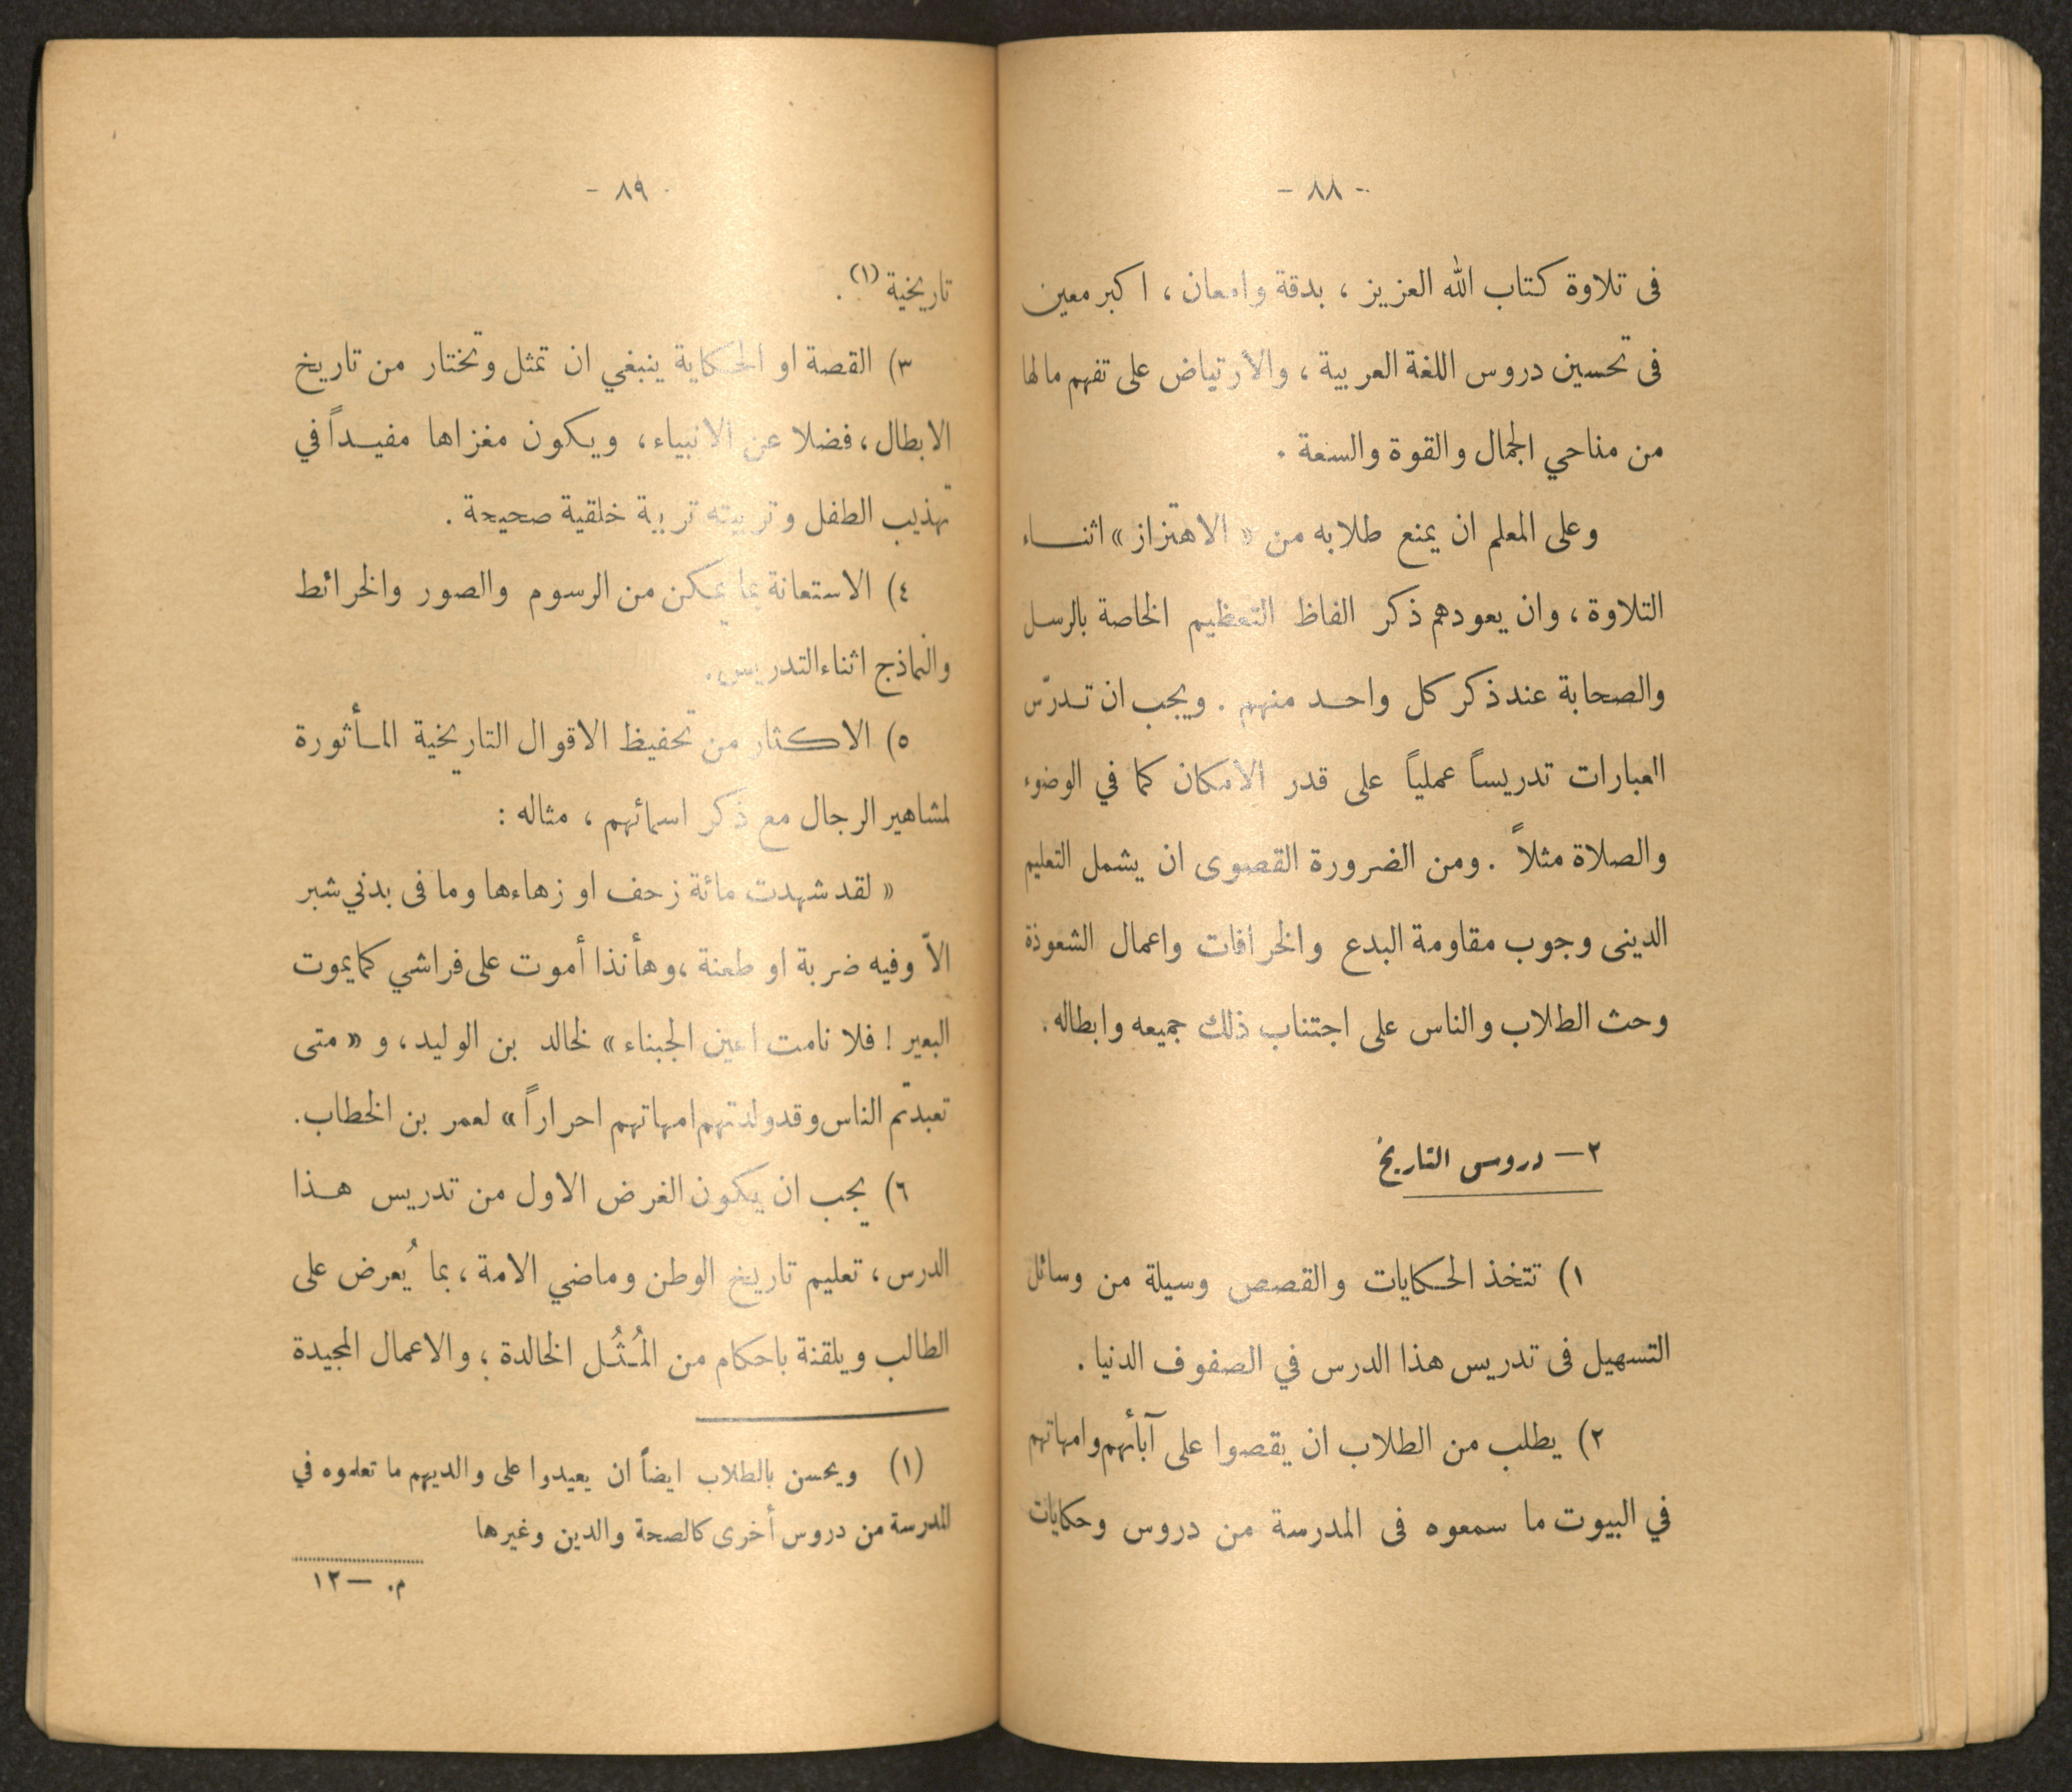 - ٨٨ -
فى تلاوة كتاب الله العزيز ، بدقة وامعان ، اكبر معين
فى تحسين دروس اللغة العربية ، والارتياض على تفهم مالها
من مناحي الجمال والقوة والسعة .
وعلى المعلم ان يمنع طلابه من « الاهتزاز » اثنـــاء
التلاوة ، وان يعودهم ذكر الفاظ التعظيم الخاصة بالرسل
والصحابة عند ذكر كل واحـد منهم . ويجب ان تـدرّس
العبارات تدريساً عملياً على قدر الامكان كما في الوضوء
والصلاة مثلاً . ومن الضرورة القصوى ان يشمل التعليم
الدينى وجوب مقاومة البدع والخرافات واعمال الشعوذة
وحث الطلاب والناس على اجتناب ذلك جميعه وابطاله .
٢ — دروس التاريخ
١) تتخذ الحـكايات والقصص وسيلة من وسائل
التسهيل فى تدريس هذا الدرس في الصفوف الدنيا .
٢) يطلب من الطلاب ان يقصوا على آبأئهم وامهاتهم
في البيوت ما سمعوه فى المدرسة من دروس وحكايات
- ٨٩ -
تاريخية (١) .
٣) القصة او الحـكاية ينبغي ان تمثل وتختار من تاريخ
الابطال ، فضلا عن الانبياء ، ويـكون مغزاها مفيـداً في
تهذيب الطفل وتربيته تربية خلقية صحيحة .
٤) الاستعانة بما يمـكن من الرسوم والصور والخرائط
والنماذج اثناء التدريس .
٥) الاكثار من تحفيظ الاقوال التاريخية المـأثورة
لمشاهير الرجال مع ذكر اسمائهم ، مثاله :
« لقد شهدت مائة زحف او زهاءها وما فى بدني شبر
الاّ وفيه ضربة او طعنة ، وهأنذا أموت على فراشي كما يموت
البعير ! فلا نامت اعين الجبناء » لخالد بن الوليد ، و « متى
تعبدتم الناس وقد ولدتهم امهاتهم احراراً » لعمر بن الخطاب .
٦) يجب ان يـكون الغرض الاول من تدريس هـذا
الدرس ، تعليم تاريخ الوطن وماضي الامة ، بما يُعرض على
الطالب ويلقنة باحكام من المُـثُـل الخالدة ، والاعمال المجيدة
(١) ويحسن بالطلاب ايضاً ان يعيدوا على والديهم ما تعلموه في
المدرسة من دروس أخرى كالصحة والدين وغيرها
م. — ١٢